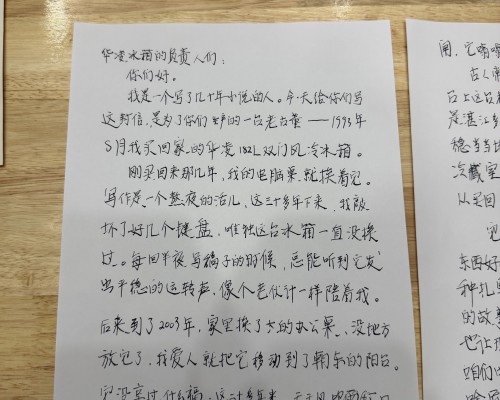 华凌冰箱的负责人们：
你们好。
我是一个写了几十年小说的人。今天给你们写
这封信，是为了你们生产的一台老古董——1993年
5月我买回家的华凌182L双门风冷冰箱。
刚买回来那几年，我的电脑桌就挨着它。
写作是一个熬夜的活儿，这三十多年下来，我敲
坏了好几个键盘，唯独这台冰箱一直没换
过。每回半夜写稿子的时候，总能听到它发
出平稳的运转声，像个老伙计一样陪着我。
后来到了2003年，家里换了大的办公桌，没地方
放它了，我爱人就把它移动到了朝东的阳台。
它没享过什么福，这三十多年来，天天风吹雨打日
用，它嗬
古人常
台上这台
是湛江
稳当当
冷藏室
从买回
它
东西好
种扎
的故
也让
咱们